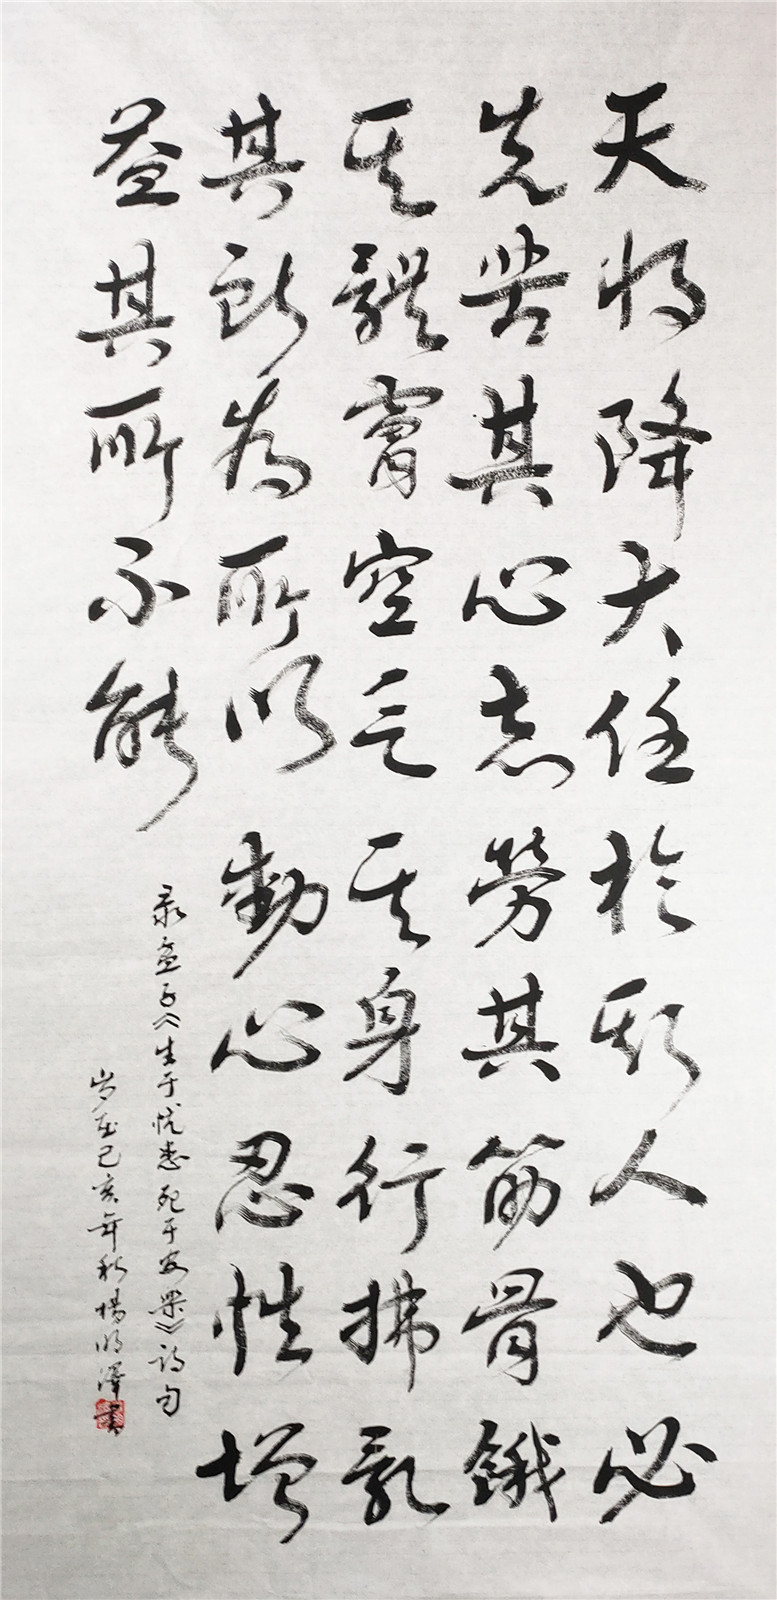 天将降大任於斯人也必
先苦其心志勞其筋骨餓
其體膚空乏其身行拂亂
其所為所以動心忍性增
益其所不能
录孟子《生于忧患死于安樂》诗句
岁在己亥年秋楊明澤書